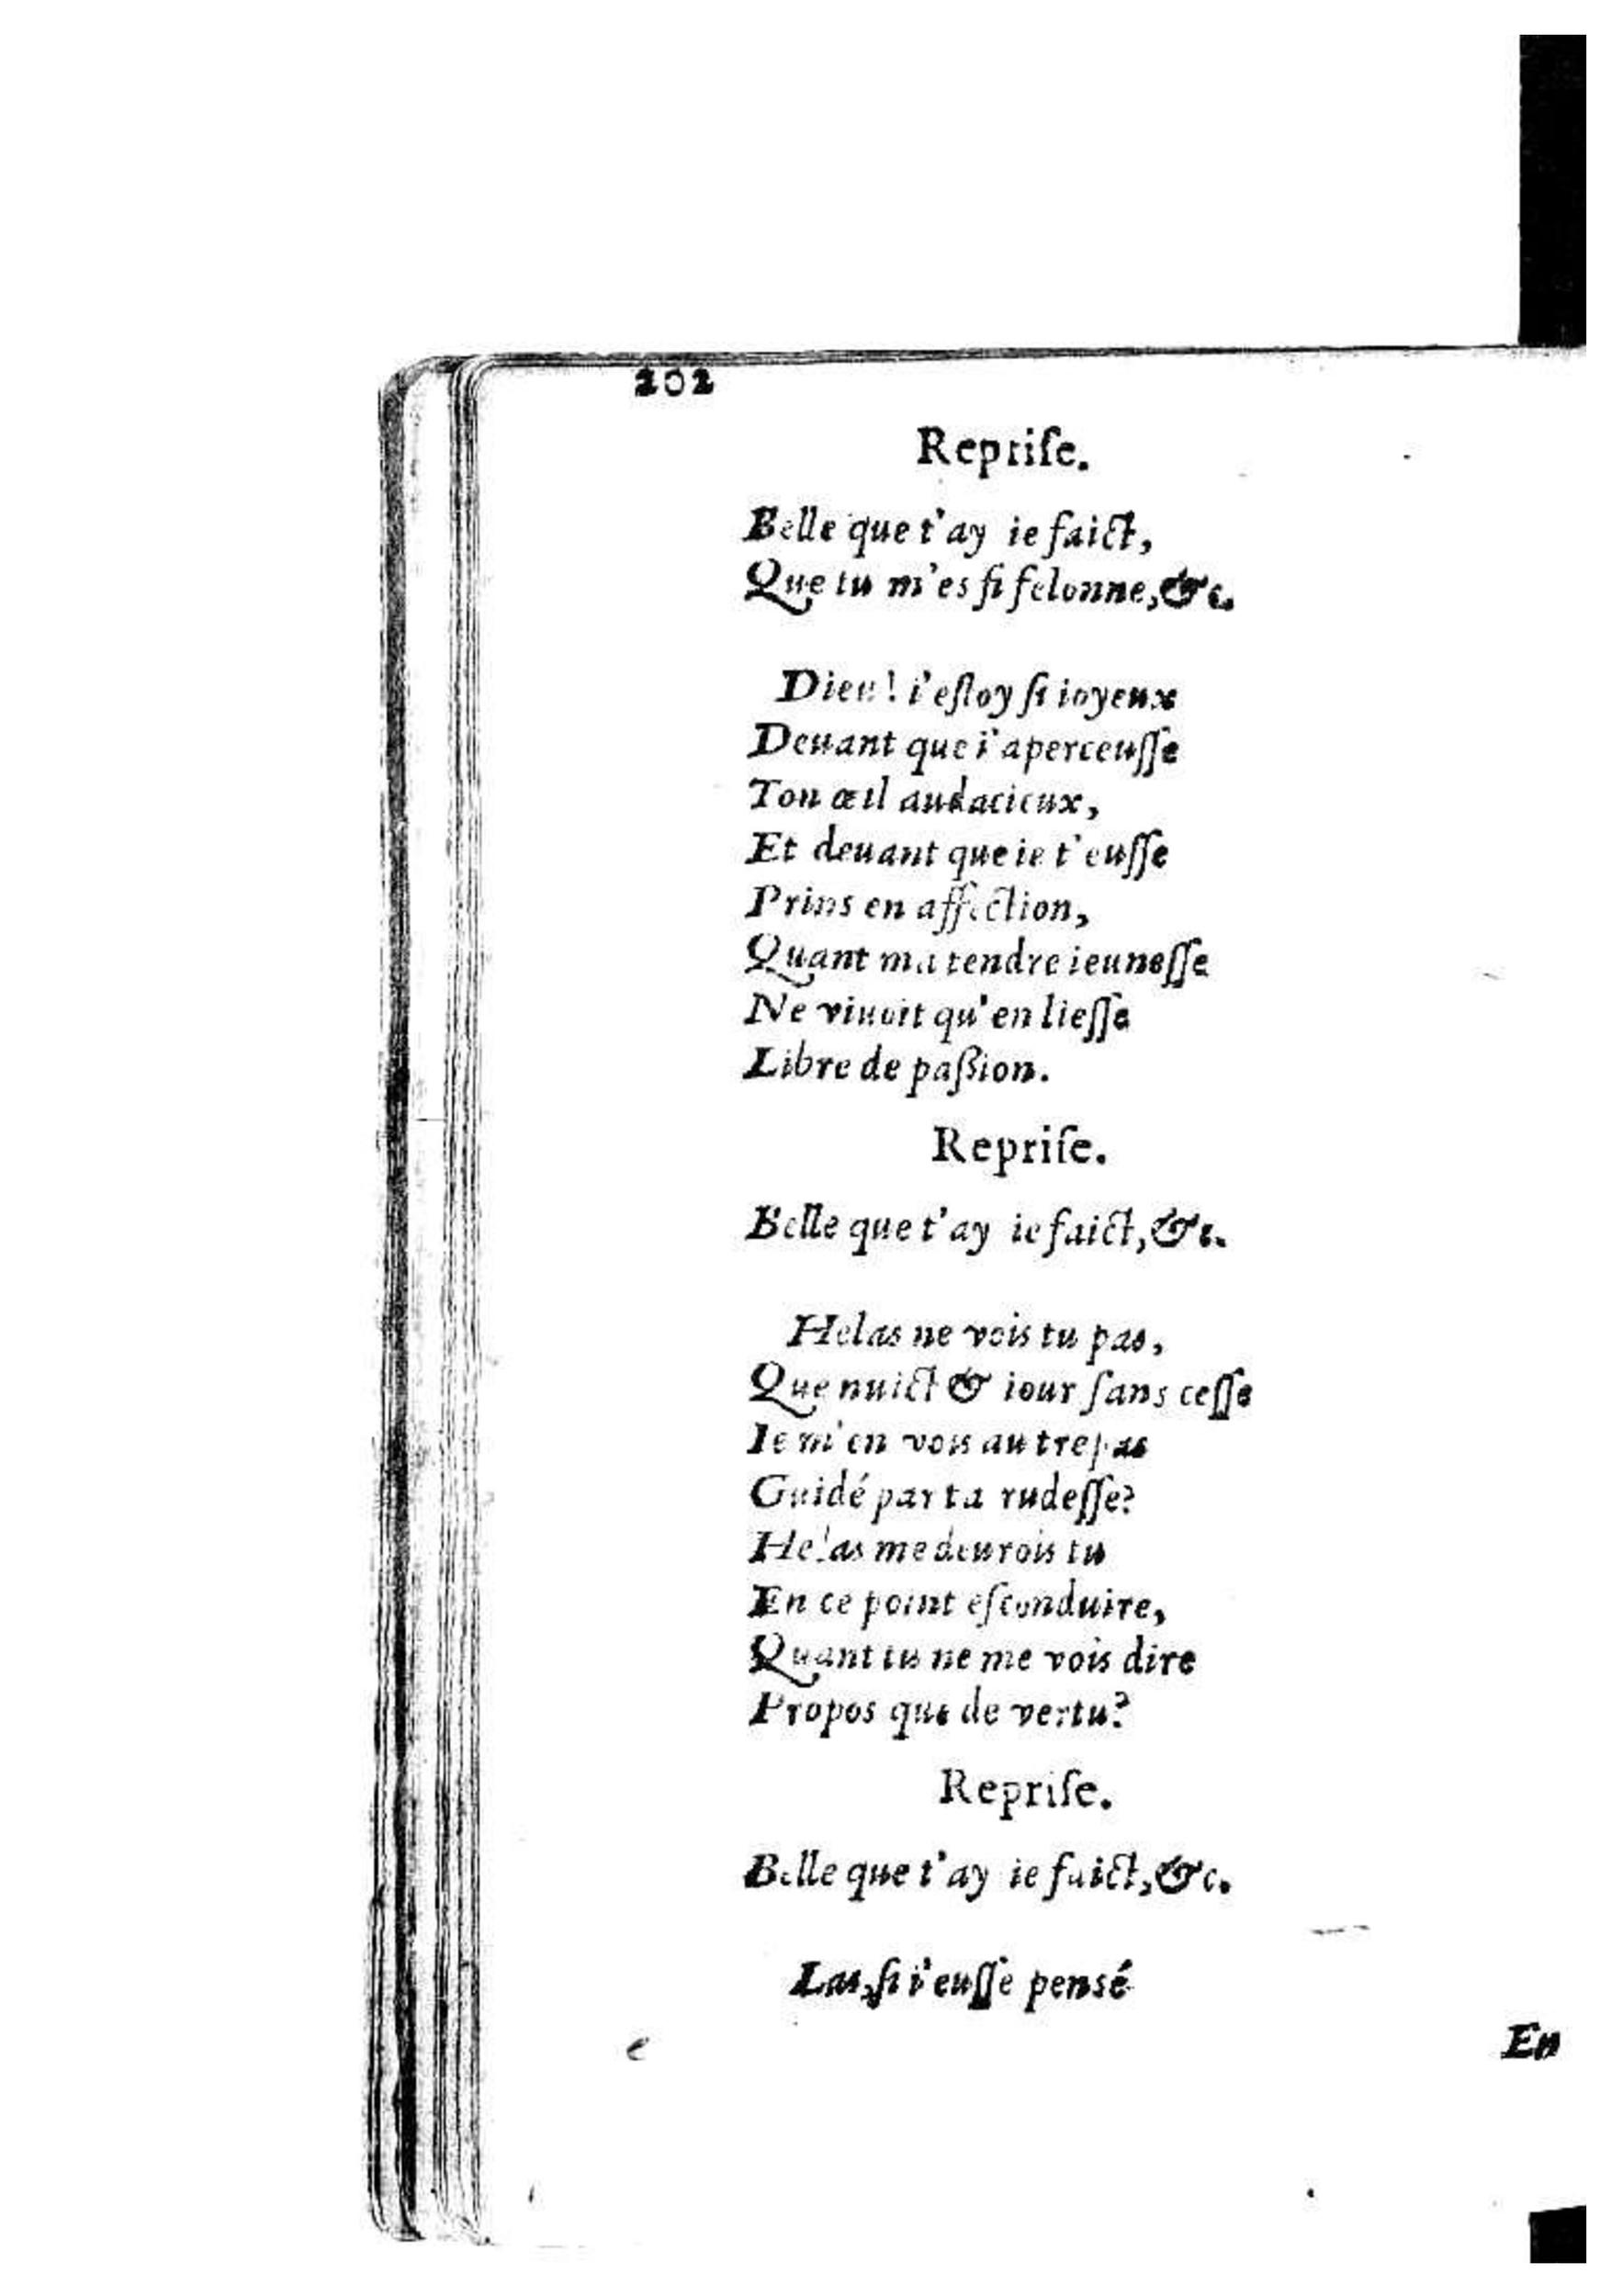 202
Repriſe.
Belle que t'ay ie faict,
Que tu m'es ſi felonne, &c.
Dieu! i'eſtoy ſi ioyeux
Deuant que i'aperceuſſe
Ton œil audacieux,
Et deuant que ie t'euſſe
Prins en affection,
Quant ma tendre ieuneſſe
Ne viuoit qu'en lieſſe
Libre de paßion.
Repriſe.
Belle que t'ay ie faict, &c.
Helas ne vois tu pas,
Que nuict & iour ſans ceſſe
Ie m'en vois au treſpas
Guidé par ta rudeſſe?
Helas me deurois tu
En ce point eſconduire,
Quant tu ne me vois dire
Propos que de vertu?
Repriſe.
Belle que t'ay ie faict, &c.
Las, ſi i'euſſe pensé
En